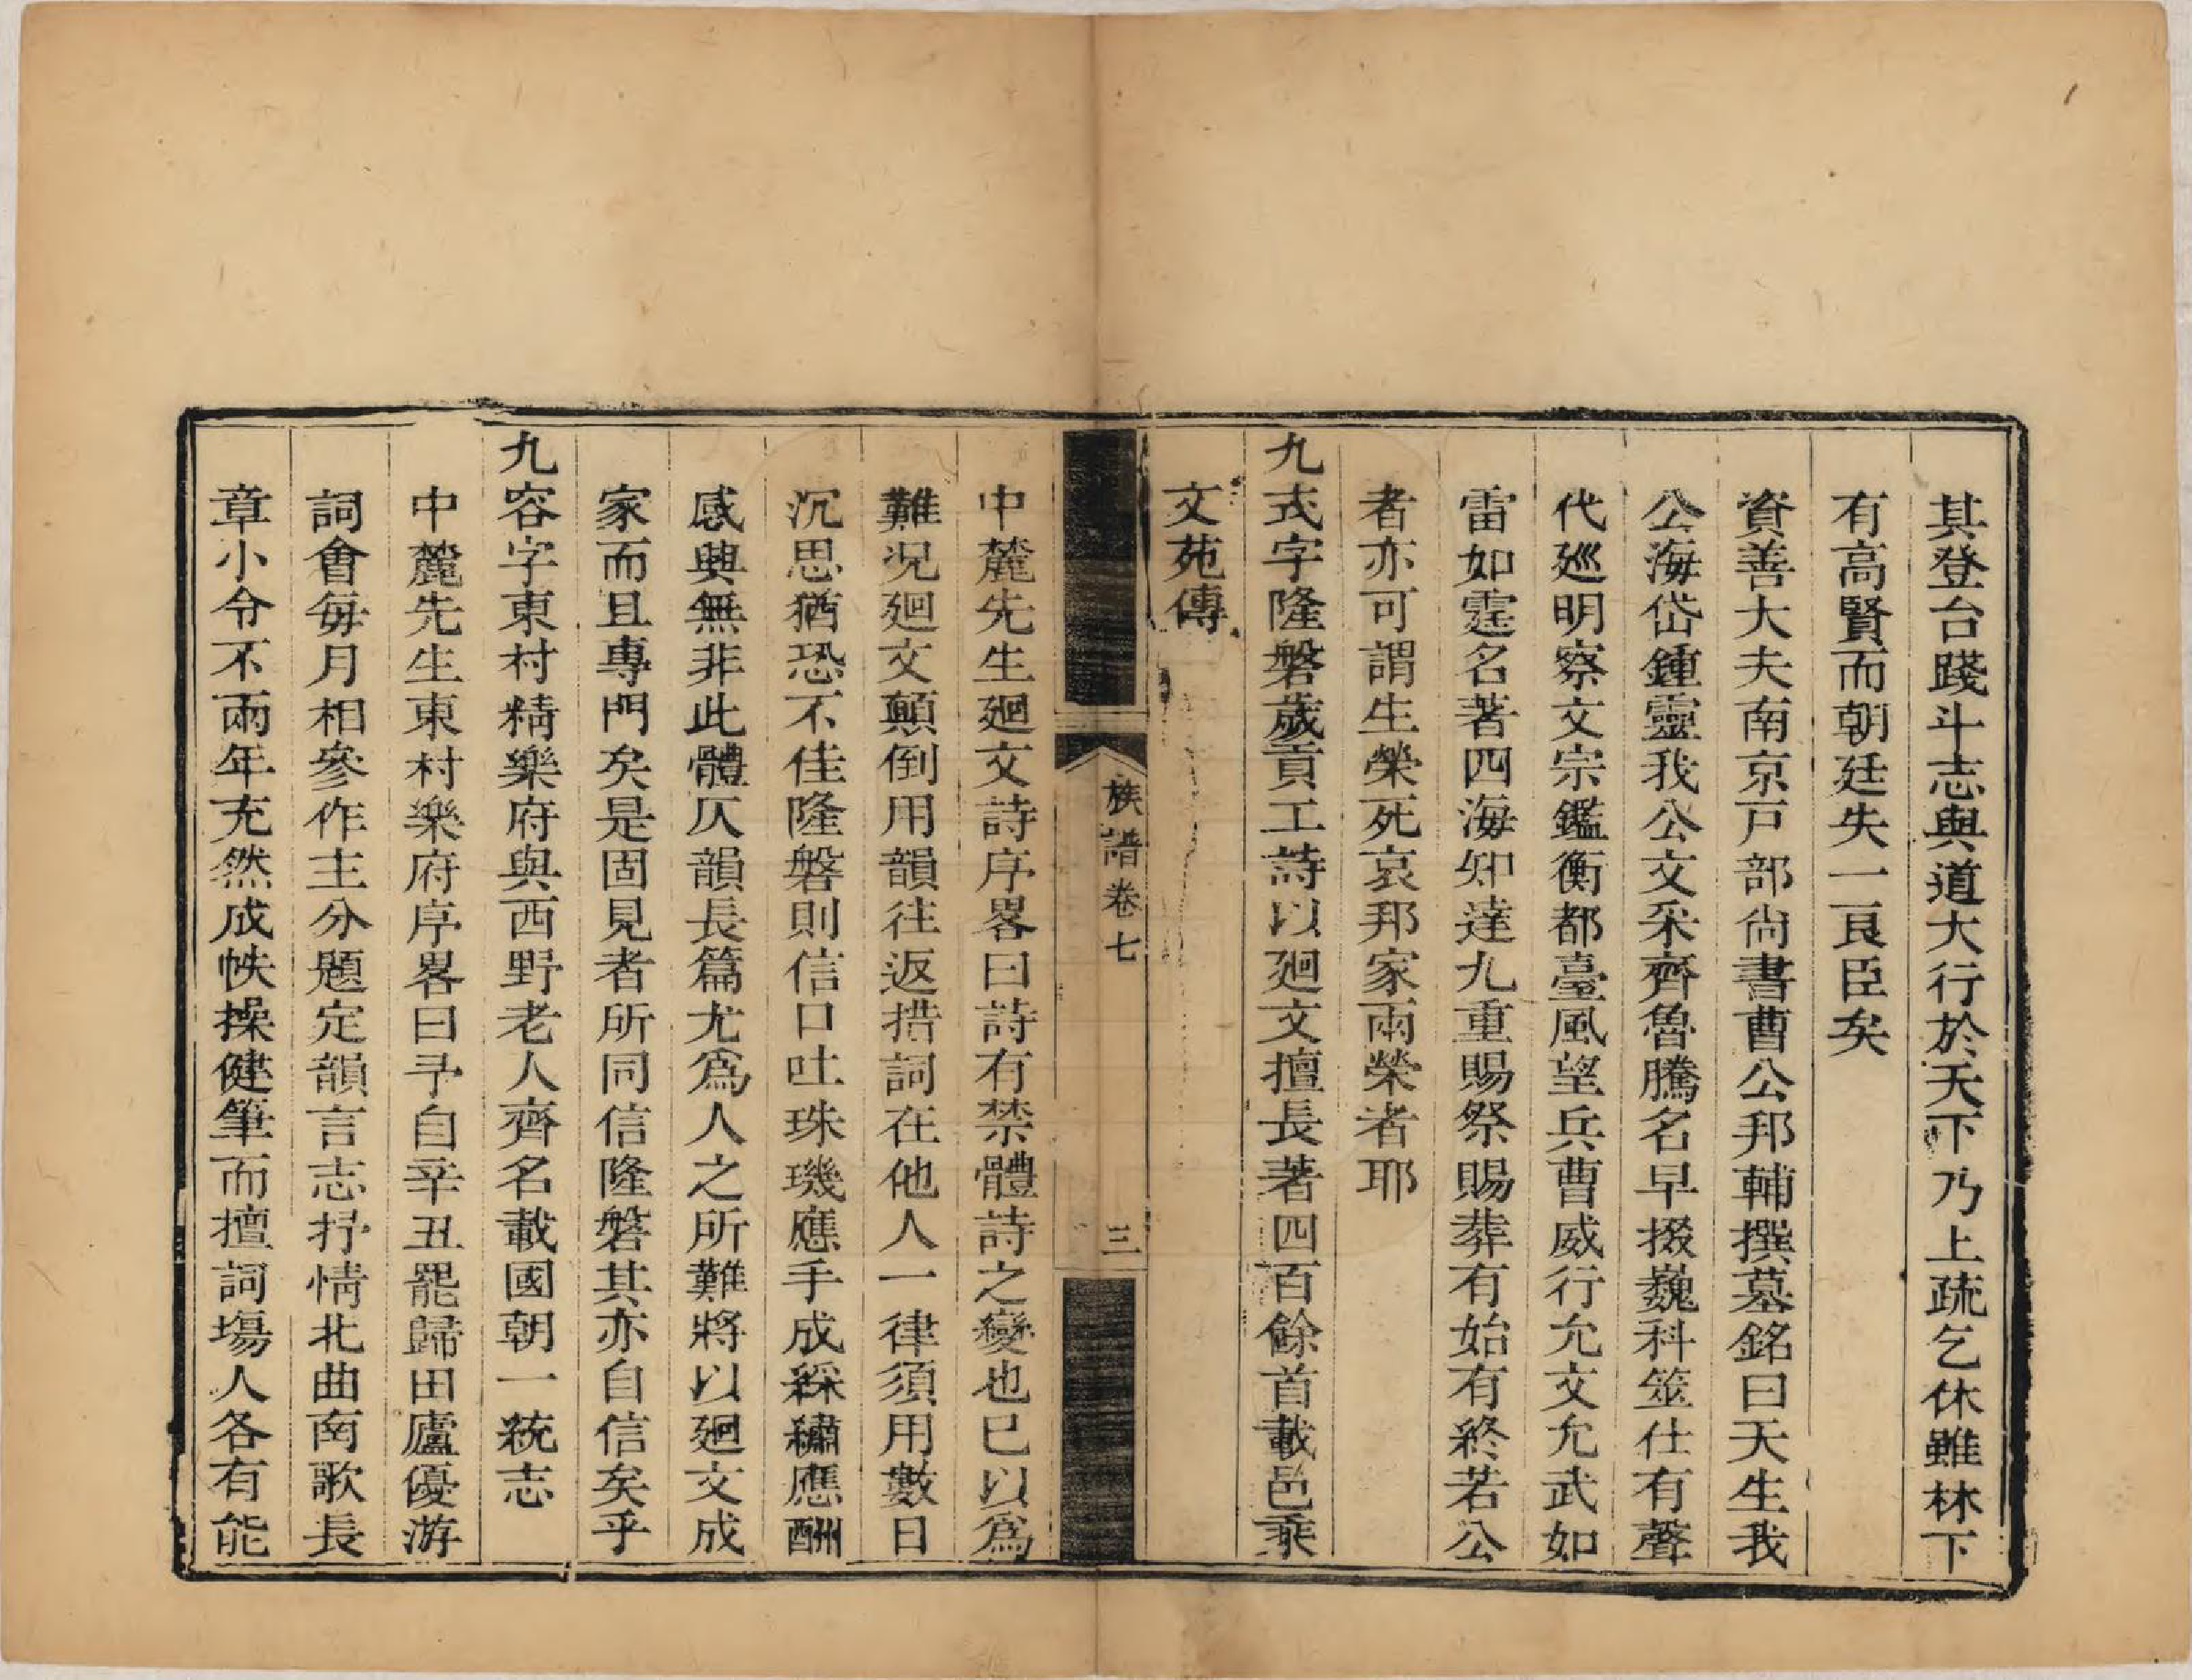 其登台踐斗志與道大行於天下乃上疏乞休雖林下
有高賢而朝廷失一良臣矣
資善大夫南京戸部尚書曹公邦輔撰墓銘曰天生我
公海岱鍾靈我公文采齊魯騰名早掇巍科筮仕有聲
代廵明察文宗鑑衡都臺風望兵曹威行允文允武如
雷如霆名著四海知達九重賜祭賜葬有始有終若公
者亦可謂生榮死哀邦家兩榮者耶
九式字隆磐歲貢工詩以廻文擅長著四百餘首載邑乘
文苑傳
族譜卷七
三
中麓先生廻文詩序畧曰詩有禁體詩之變也巳以爲
難况廻文顛倒用韻往返措詞在他人一律須用數日
沉思猶恐不佳隆磐則信口吐珠璣應手成綵繡應酬
感興無非此體仄韻長篇尤爲人之所難將以廻文成
家而且專門矣是固見者所同信隆磐其亦自信矣乎
九容字東村精樂府與西野老人齊名載國朝一統志
中麓先生東村樂府序畧曰予自辛丑罷歸田廬優游
詞會每月相參作主分題定韻言志抒情北曲南歌長
章小令不兩年充然成帙操健筆而擅詞塲人各有能